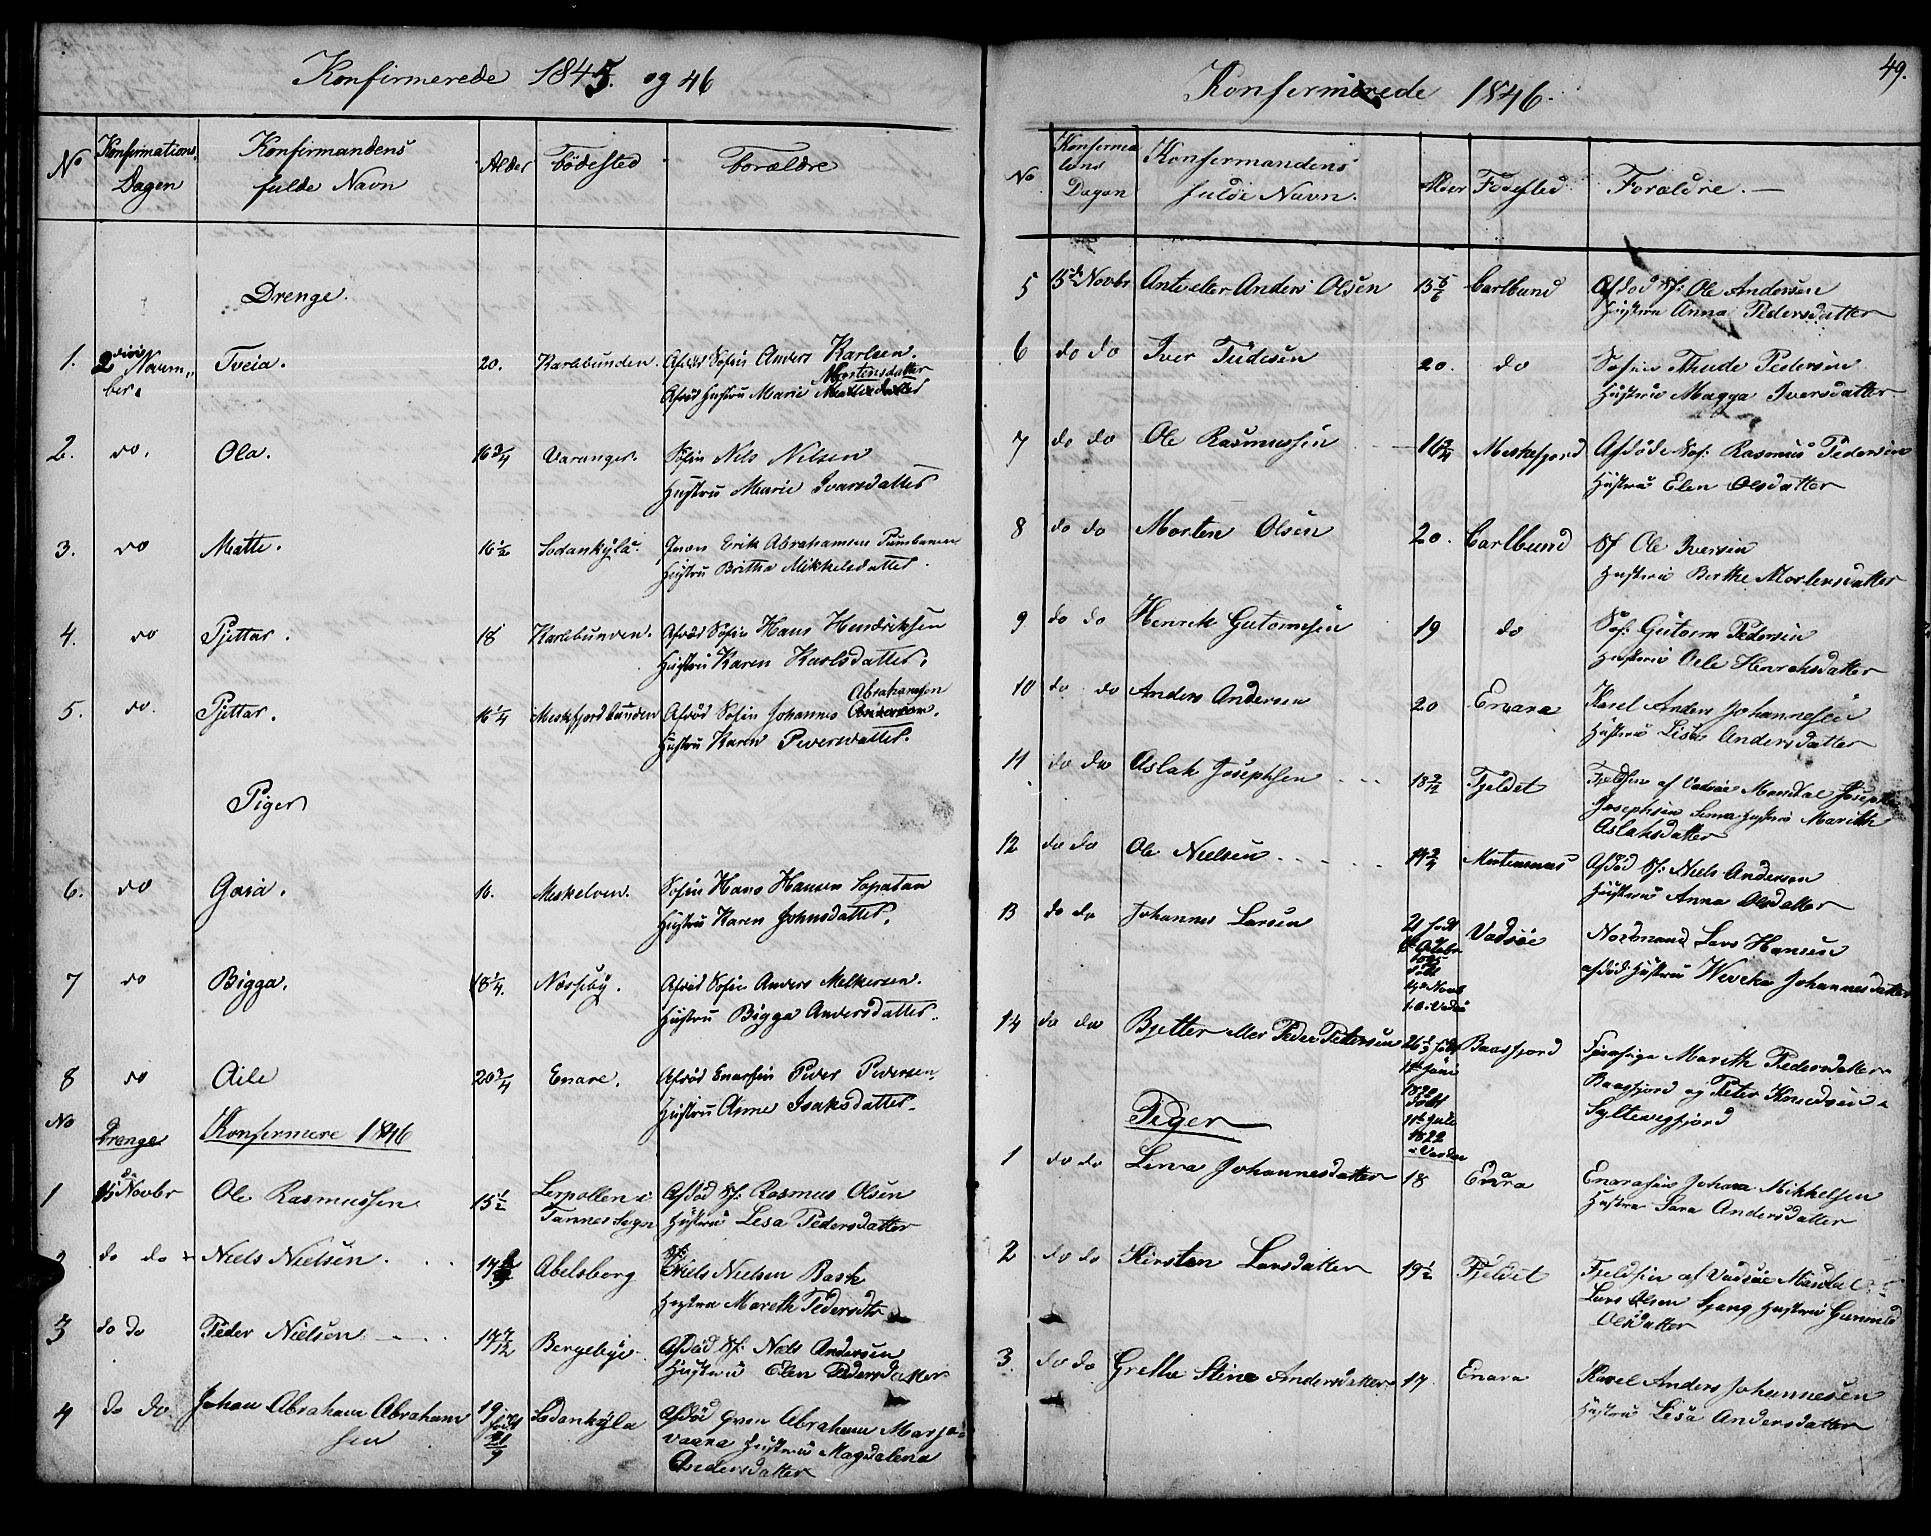 Konfirmerede 1845. og 46
No
Konfirmations Dagen
Konfirmandens fulde Navn
Alder
Fødested
Forældre
Drenge.
1. 2den Novem-ber. Tveia. 20. Karlbunden. Afdød Søfin Anders Karlsen.
Mortensdatter
Afdød Hustru Marie
2. do. Ola. 16 3/4 Varanger. Søfin Nils Nilsen
Hustru Marie Ivarsdatter
3. do Matti. 16 1/2 Sodankylä. Qvæn Erik Abrahamsen
Hustru Britha Mikkelsdatter.
4. do Pjettar. 18 Karlbunden. Afdød Søfin Hans Hendriksen
Hustru Karen Karlsdatter.
5. do. Pjettar. 16 1/4 Meskfjordbunden Afdød Søfin Johannes Abrahamsen
Hustru Karen Pedersdatter.
Piger
6. do Garia. 16. Meskelven. Søfin Hans Hansen
Hustru Karen Johnsdatter.
7 do Bigga. 18 1/4. Næsseby. Afdød Søfin Anders Melkersen.
Hustru Bigga Andersdatter.
8 do Aile 20 3/4 Enare. Afdød Enarfin Peder Pedersen
Hustru Anne Isaksdatter.
No Drenge Konfermere 1846
1 15de Novbr Ole Rasmussen 15 1/2 Lerpollen i Afdød Sf: Rasmus Olsen
Tannes Sogn Hustru Lesa Pedersdatter
2 do do Niels Nielsen. Abelsborg Sf. Niels Nielsen Bask
Hustru Mareth Pedersdtr
3 do do Peder Nielsen 17 7/12 Bergebye. Afdød Sf: Niels Andersen
Hustru Elen Pedersdatter
4 do do Johan Abraham Abraham 19 født Sodankyla Afdød Qven Abraham Marja-
sen vaara Hustru Magdalena
Andersdatter
49.
Konfermerede 1846.
No
Konfermations Dagen
Konfermandens fulde Navn.
Alder
Fødested
Forældre.
5 15de Novbr Ante eller Anders Olsen 15 5/6 Carlbund Afdød Sf: Ole Andersen
Hustru Anna Pedersdatter
6 do do Iver Tudesen 20. do Søfin Thude Pedersen
Hustru Magga Iversdatter
7 do do Ole Rasmussen 16 3/4 Meskefjord Afdøde Søf: Rasmus Pedersen
Hustru Elen Olsdatter
8 do do Morten Olsen 20. Carlbund Sf Ole Iversen
Hustru Berthe Mortensdatter
9 do do Henrik Gutormsen 19 do Søf: Gutorm Pedersen
Hustru Oele Henriksdatter
10 do do Anders Andersen 20 Enara Karel Anders Johannesen
Hustru Lisa Andersdatter
11 do do Aslak Josephsen 18 9/12 Fjeldet Fjeldfin af Vadsøe Mandtal Joseph
Josephsen Sirma Hustru Marith
Aslaksdatter
12 do do Ole Nielsen 17 3/4 Mortensnæs Afdød Sf: Niels Andersen
Hustru Anna Olsdatter
13 do do Johannes Larsen 21 født Vadsøe Nordmand Lars Hansen
afdød Hustru Weveka Johannesdatter
14 do do Bjetter eller Peder Pedersen Baasfjord Marith Pedersdatter
Baasfjord og Peter Knudsen
Syltevigfjord
Piger
1 do do Lerva Johannesdatter 18 Enara Enarafin Johan Mikkelsen
Hustru Sara Andersdatter
2 do do Kirsten Larsdatter 19 1/2 Fjeldet Fjeldfin af Vadsøe Mandtal
Lars Olsen Hustru Gunnild
Olsdatter
3. do do Grethe Stine Andersdatter 17. Enara Karel Anders Johannesen
Hustru Lesa Andersdatter